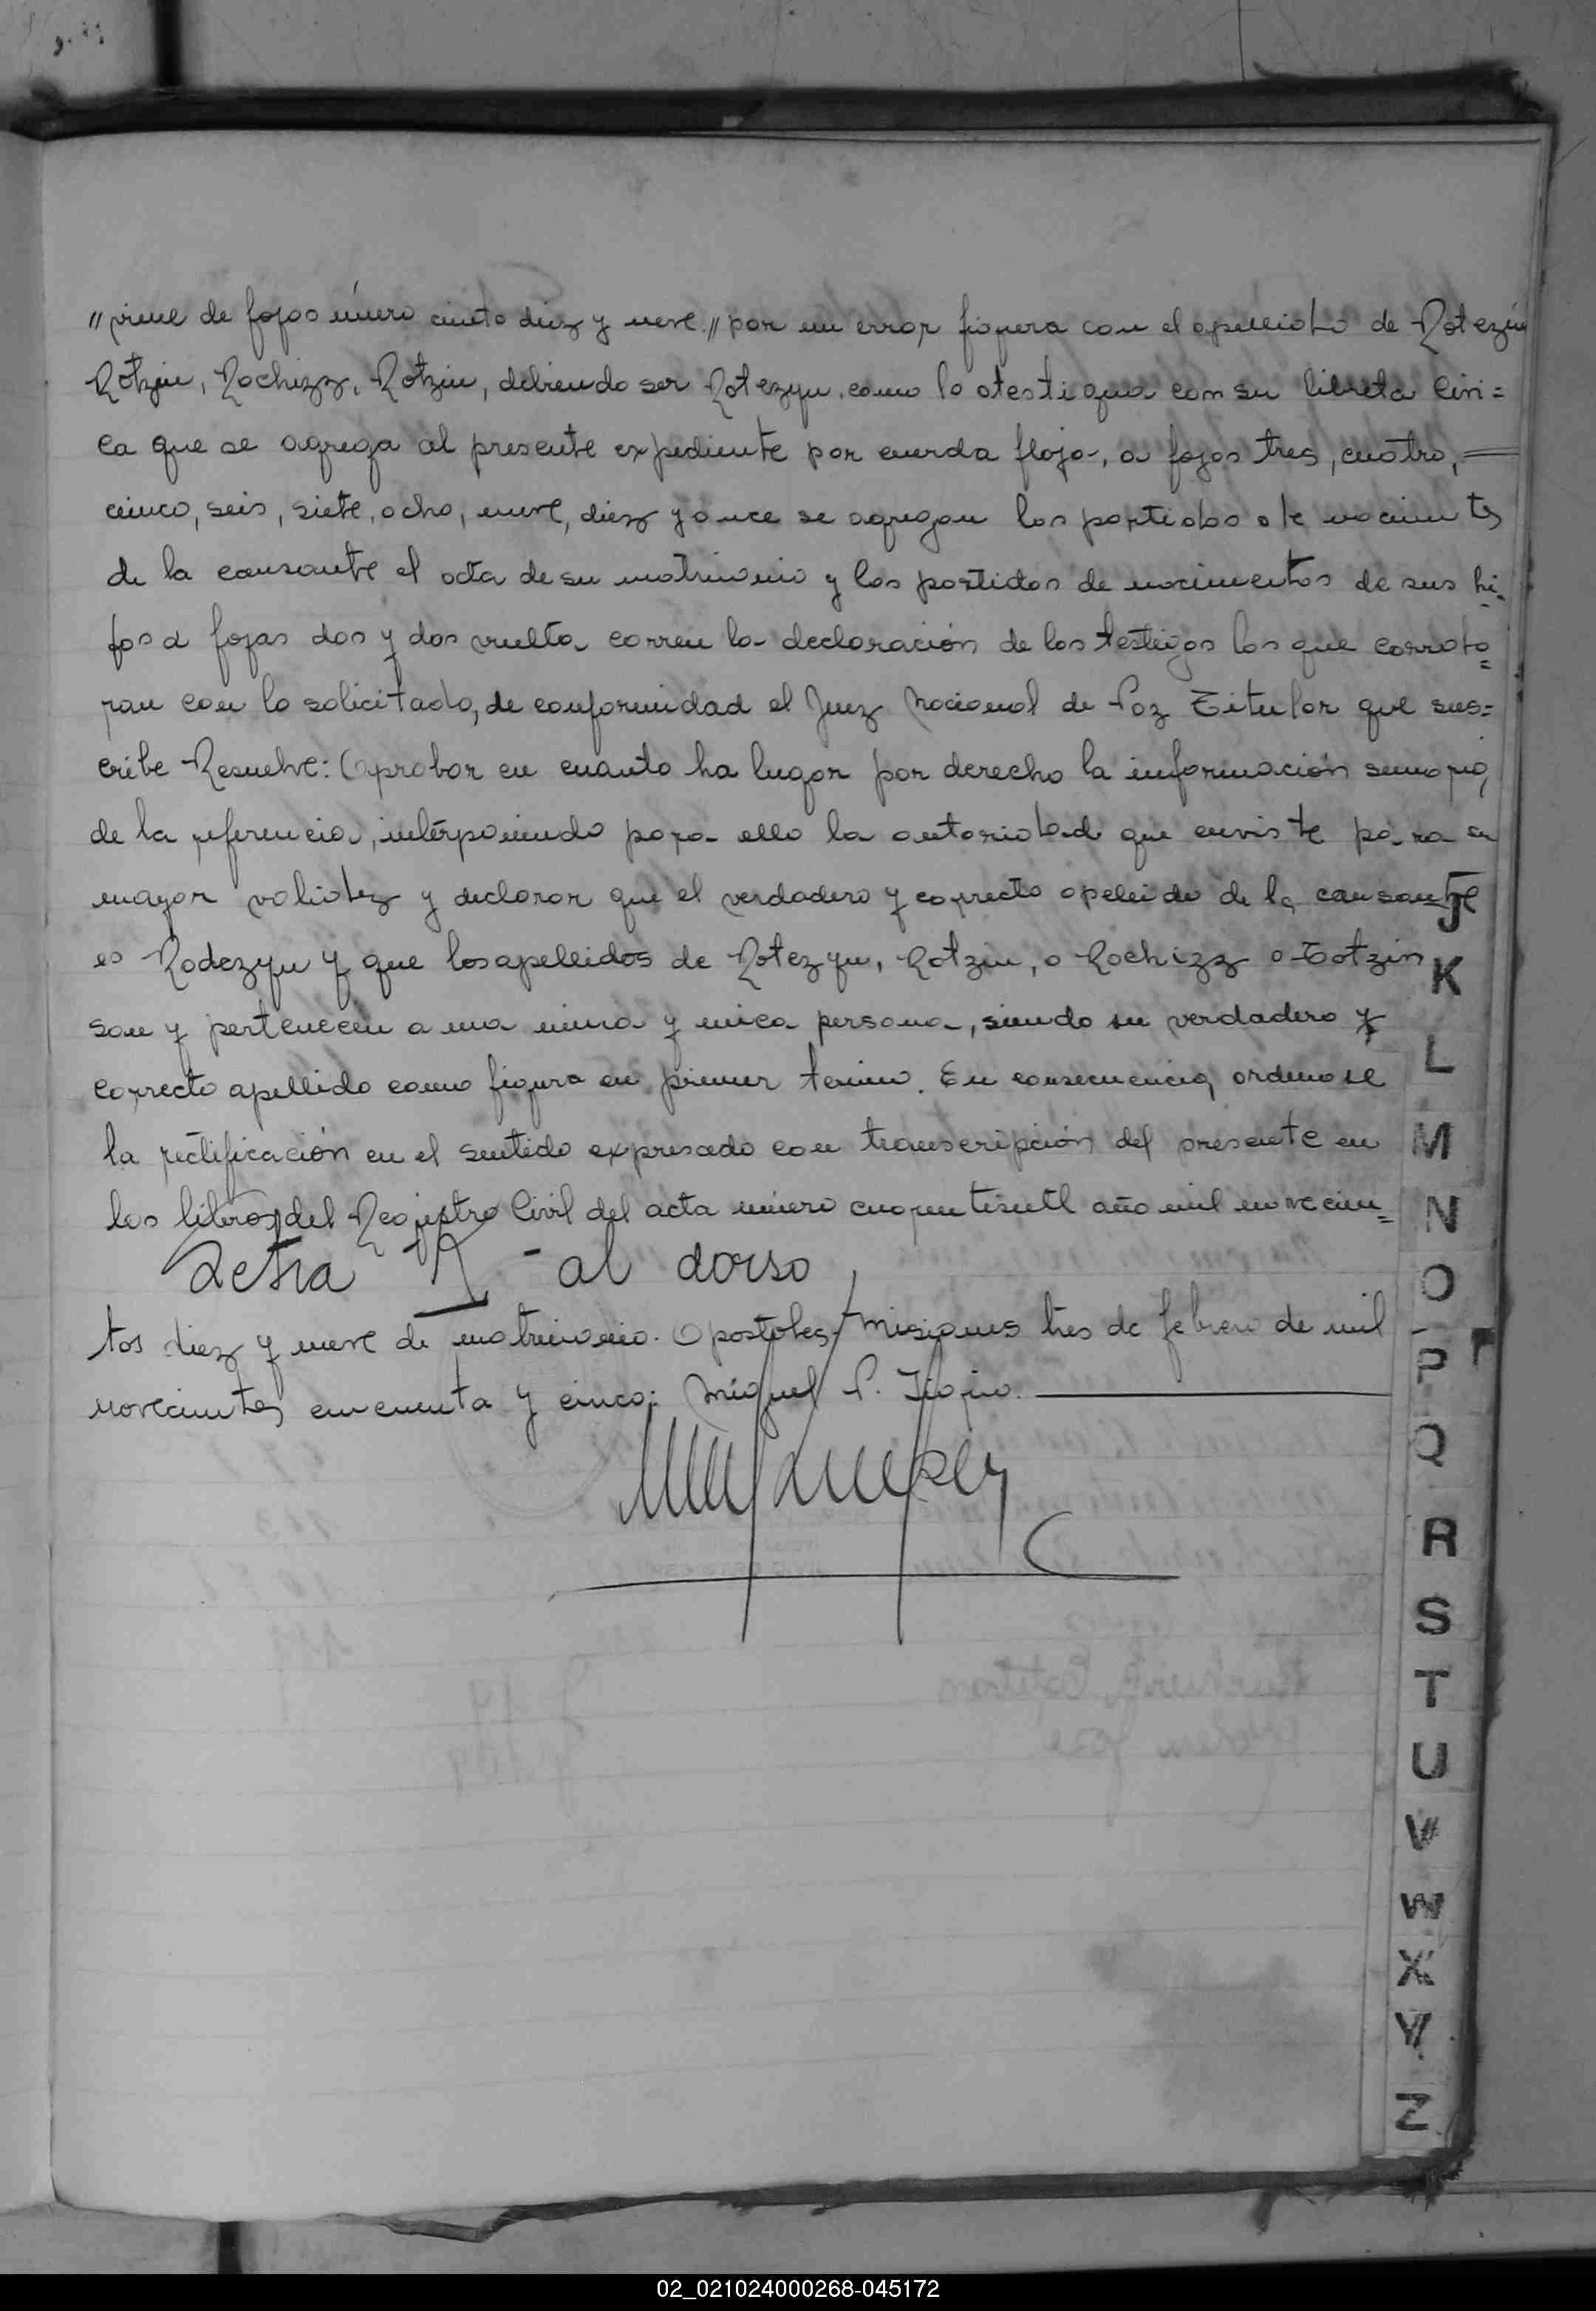 // viene de fojas número ciento diez y nueve // por un error figura con el apellido de Rotezyn
Rotzin, Rochizz, Rotzin, debiendo ser Rotezyn, como lo atestigua con su libreta Cívi=
ca que se agrega al presente expediente por cuerda floja, a fojas tres, cuatro, =
cinco, seis, siete, ocho, nueve, diez y once se agregan las partidas de nacimientos
de la causante el acta de su matrimonio y las partidas de nacimientos de sus hi=
jos a fojas dos y dos vuelta corren la declaración de los testigos los que corrobo=
ran con lo solicitado, de conformidad el Juez Nacional de Paz Titular que sus=
cribe Resuelve: Aprobar en cuanto ha lugar por derecho la información sumaria,
de la referencia, interponiendo para ello la autoridad que enviste para su
mayor validez y declarar que el verdadero y correcto apellido de la causante
es Rodezyn y que los apellidos de Rotezyn, Rotzin, o Rochizz o Totzin
son y pertenecen a una misma y única persona, siendo su verdadero y
correcto apellido como figura en primer termino. En consecuencia, ordenase
la rectificación en el sentido expresado con transcripción del presente en
los libros del Registro Civil del acta número año mil novecien=
Letra I - al dorso
tos diez y nueve de matrimonio. Apostoles, Misiones tres de febrero de mil
novecientos cincuenta y cinco: Miguel P.
J
K
L
M
N
O
P
Q
R
S
T
U
V
W
X
Y
Z
02_021024000268-045172